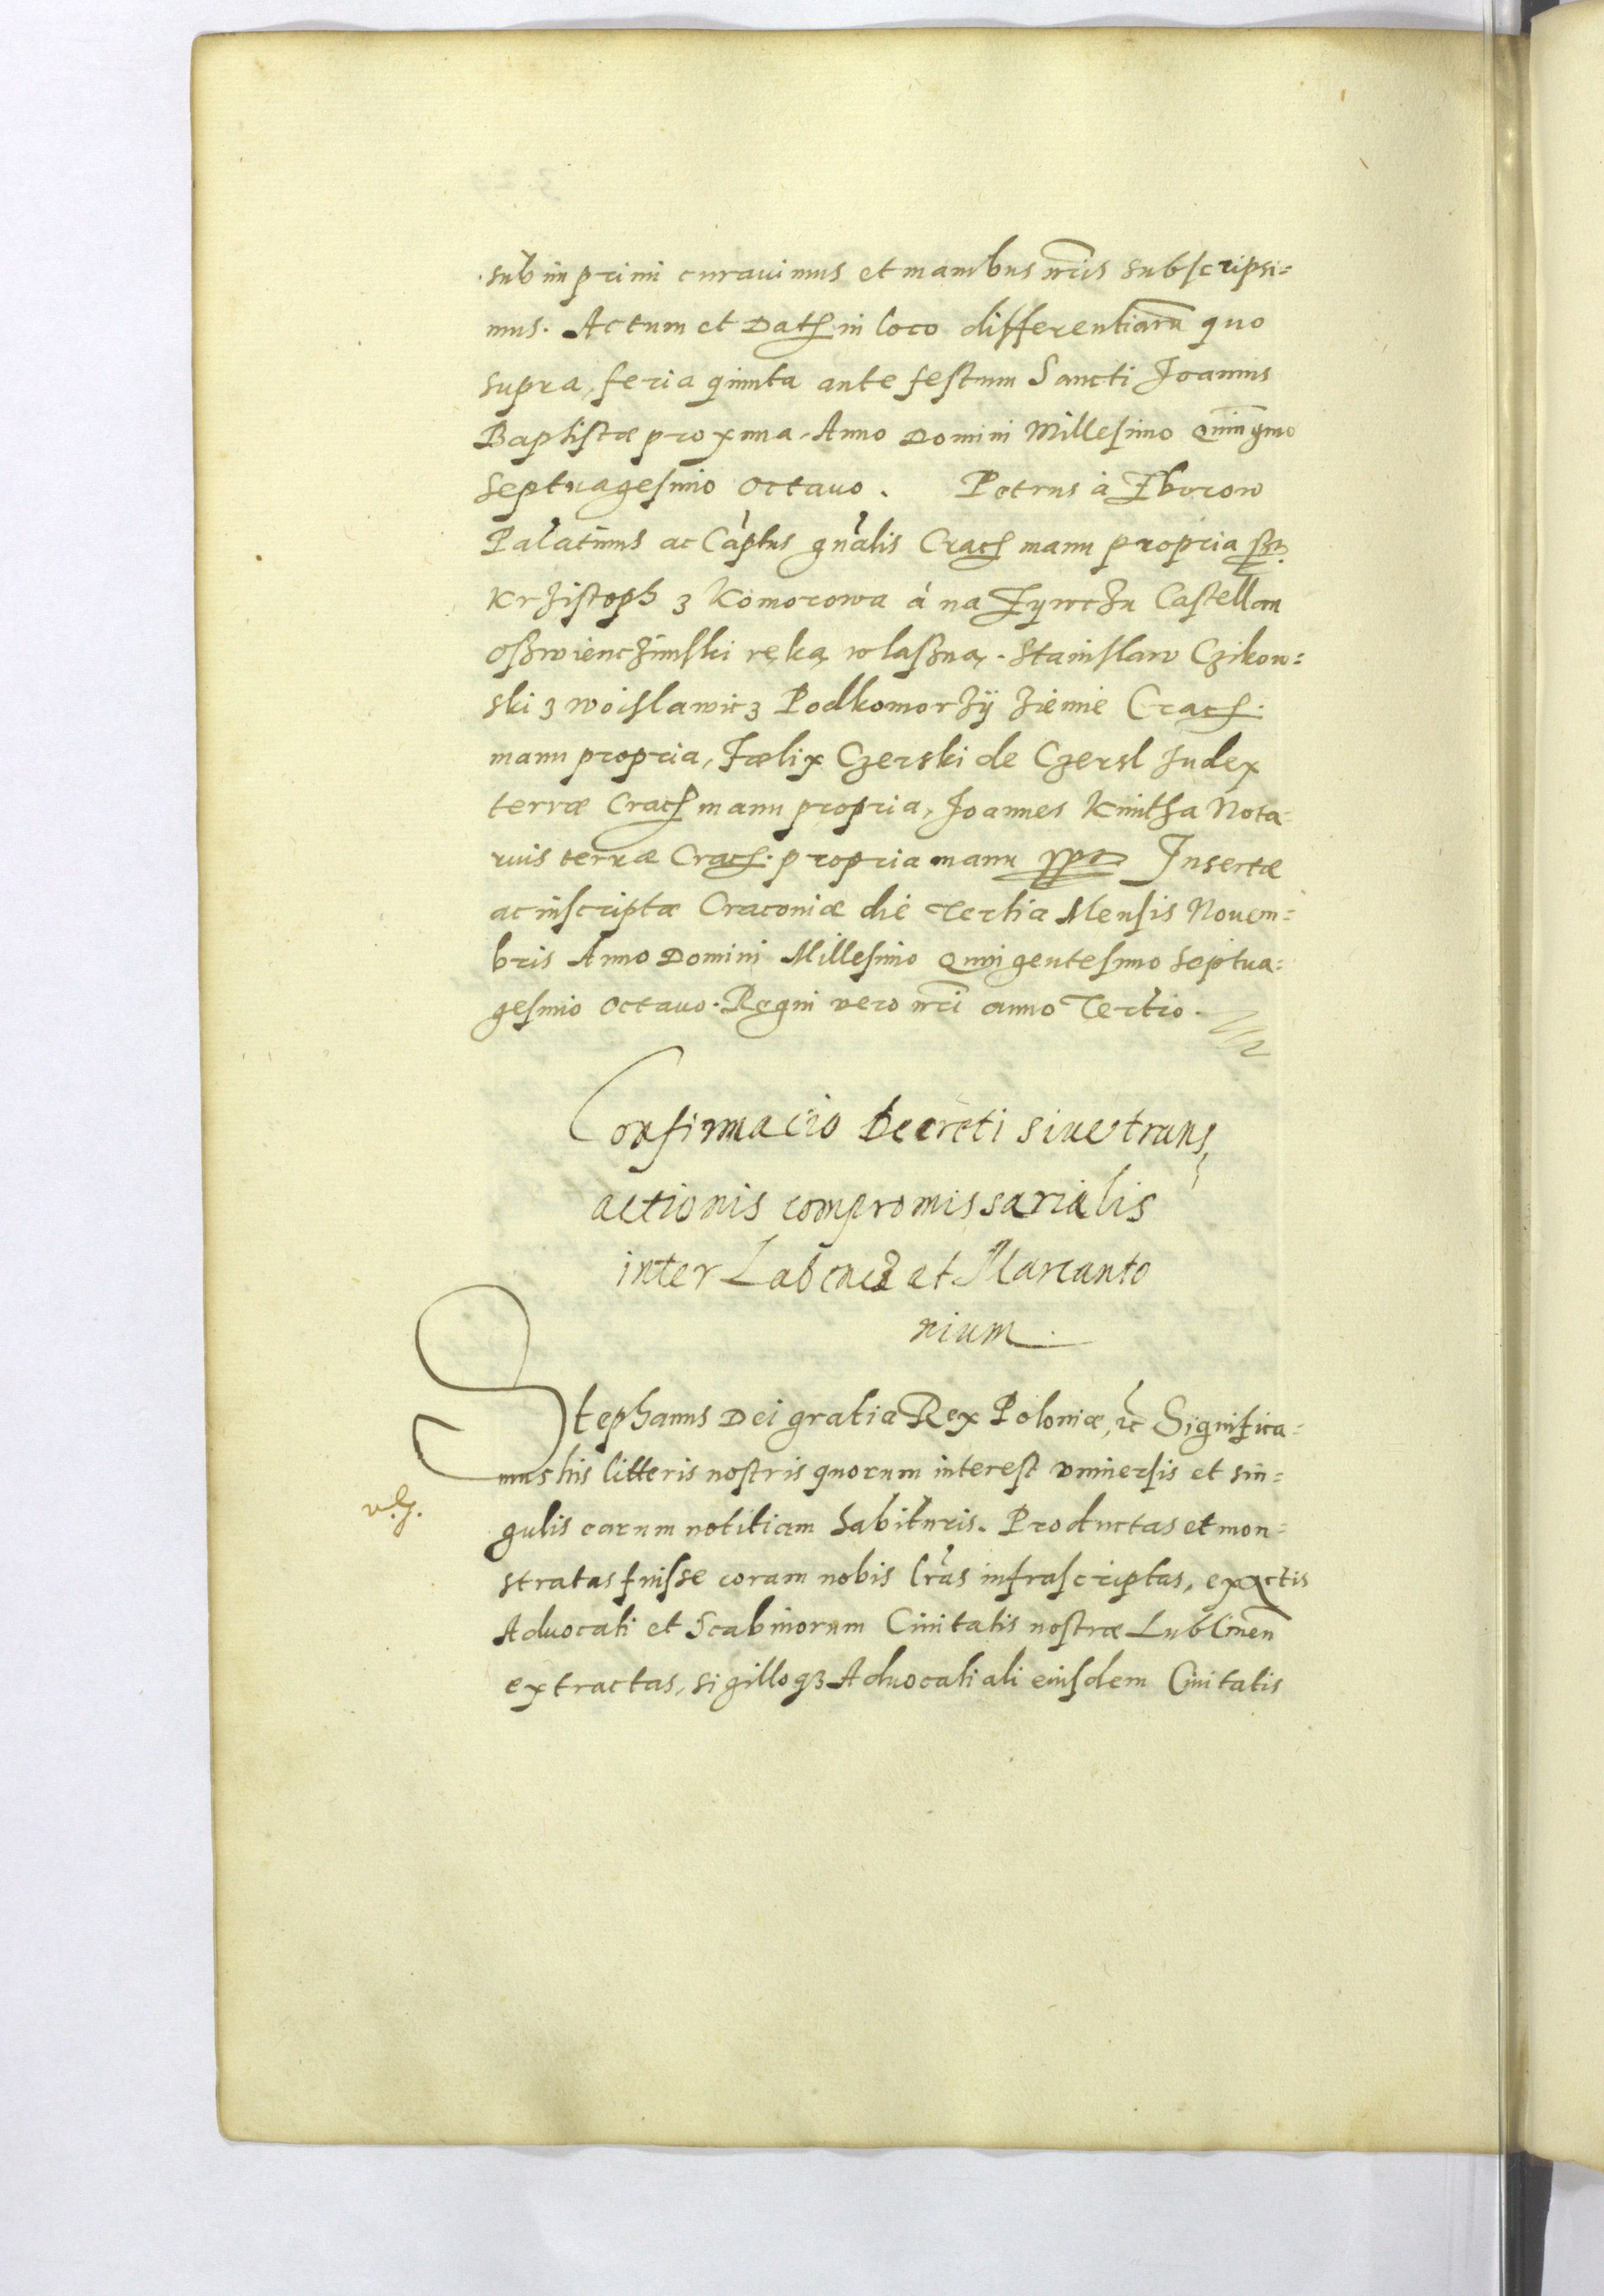 subimprimi curauimus et manibus nr̃is subscripsi=
mus. Actum et Dat̃ in loco differentiarũ quo
supra, feria quinta ante festum Sancti Joannis
Baptistæ proxima, Anno Domini Millesimo Quingm̃o
Septuagesimo octauo. Petrus à Zborow
Palatinus ac Cap̃tus gñalis Crac̃ manu propria sst.
Krzistoph z Komorowa á na Zywczu Castellan
Oszwienczimski ręką właszną. Stanislaw Czikow=
ski z woislawicz Podkomorzÿ ziemie Crac̃.
manu propria, Fælix Czerski de Czersl Judex
terræ Crac̃ manu propria, Joannes Kmitha Nota=
rius terræ Crac̃. propria manu sst Insertæ
ac inscriptæ Cracoviæ die Tertia Mensis Nouem=
bris Anno Domini Millesimo Quingentesimo Septua=
gesimo octauo. Regni vero nr̃i anno Tertio.
Confirmacio Decreti siue trans,
actionis compromissarialis
inter et Marcanto
nium.
Stephanus Dei gratia Rex Poloniæ, ĩc Significa=
mus his litteris nostris quorum interest vniuersis et sin=
gulis earum notitiam habituris. Productas et mon=
stratas fuisse coram nobis lr̃as infrascriptas, ex actis
Aduocati et Scabinorum Ciuitatis nostræ Lublineñ
extractas, sigilloqȝ Aduocatiali eiusdem Ciuitatis